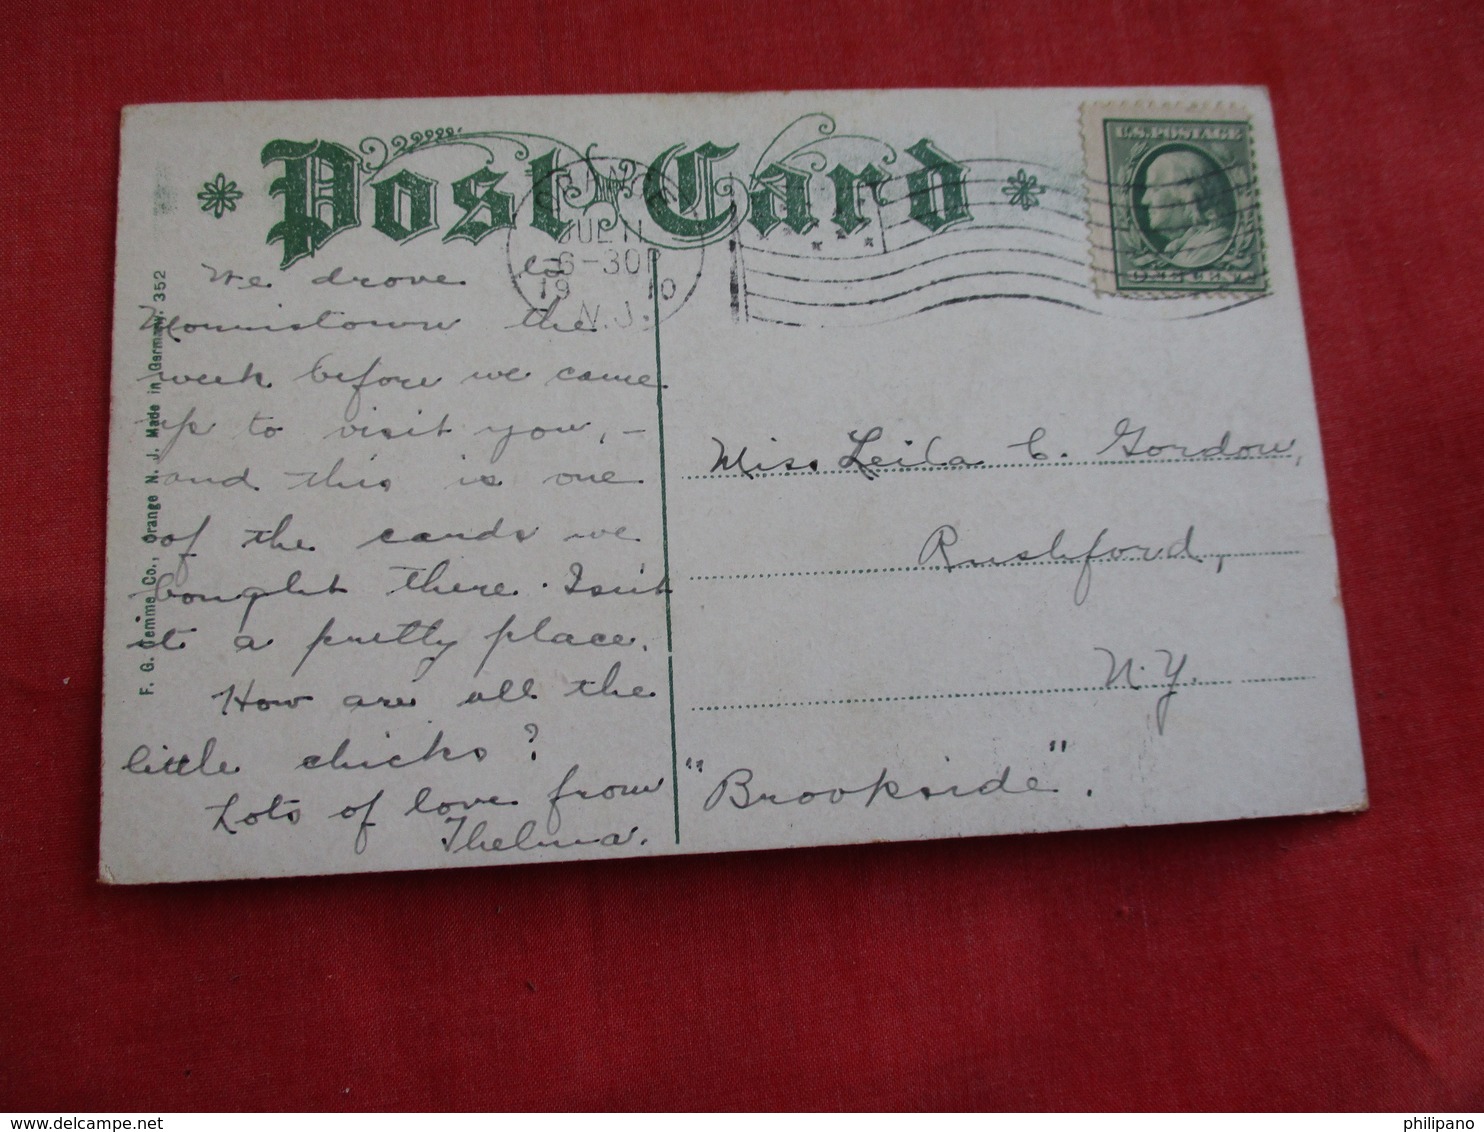 Post Card
U.S. POSTAGE
ONE CENT
ORANGE
JUL 11
6-30P
1910
N.J.
F. G. Temme Co., Orange N. J. Made in Germany. 352
We drove to
Morristown the
week before we came
up to visit you, –
and this is one
of the cards we
bought there. Isn't
it a pretty place.
How are all the
little chicks?
Lots of love from
Thelma.
Miss Leila C. Gordon,
Rushford,
N.Y.
"Brookside".
philipano